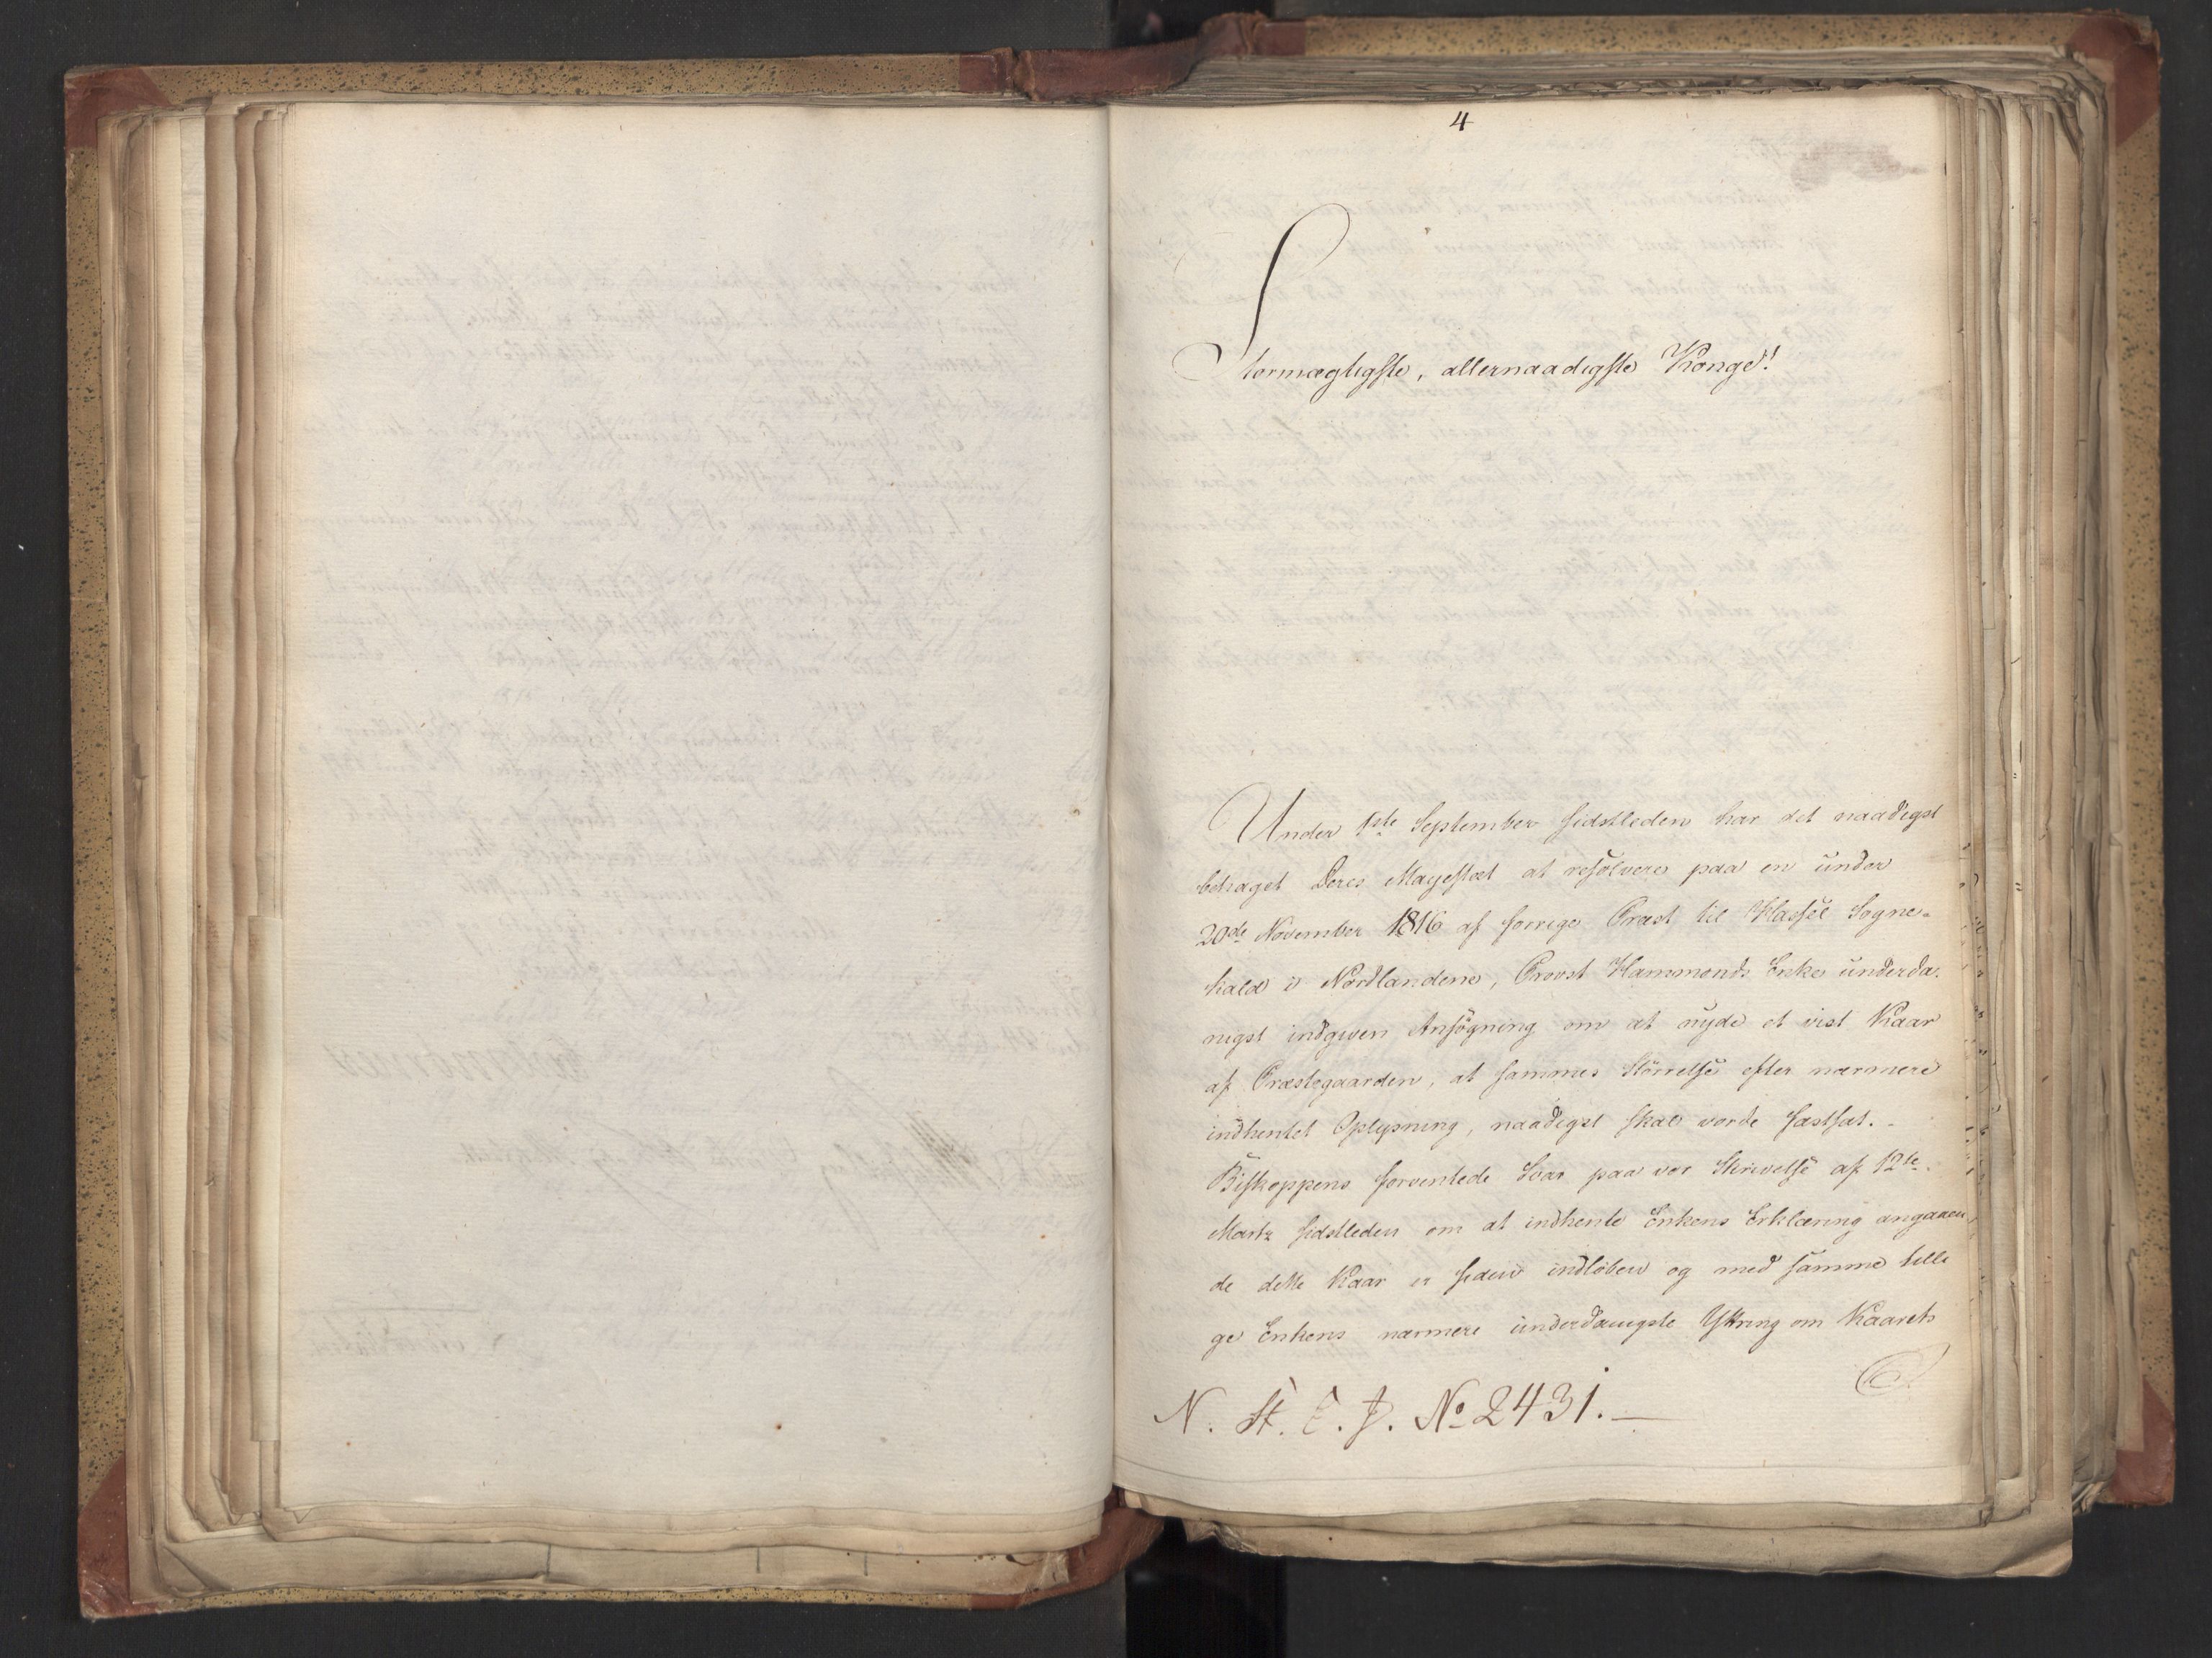 4
Stormægtigste, allernaadigste Konge!
Under 1ste September sidstleden har det naadigst
behaget Deres Majestæt at resolvere paa en under
20de November 1816 af forrige Præst til Hassel Sogne-
kald i Nordlandene, Provst Hammonds Enke underda-
nigst indgiven Ansögning om at nyde et vist Kaar
af Præstegaarden, at sammes Störrelse efter nærmere
indhentet Oplysning, naadigst skal vorde fastsat. -
Biskoppens forventede Svar paa vor Skrivelse af 12te
Martz sidstleden om at indhente Enkens Erklæring angaaen-
de dette Kaar er siden indlöben og med samme tilli
ge Enkens nærmere underdanigste Yttring om Kaarets
N. St. C. J. No 2431. —